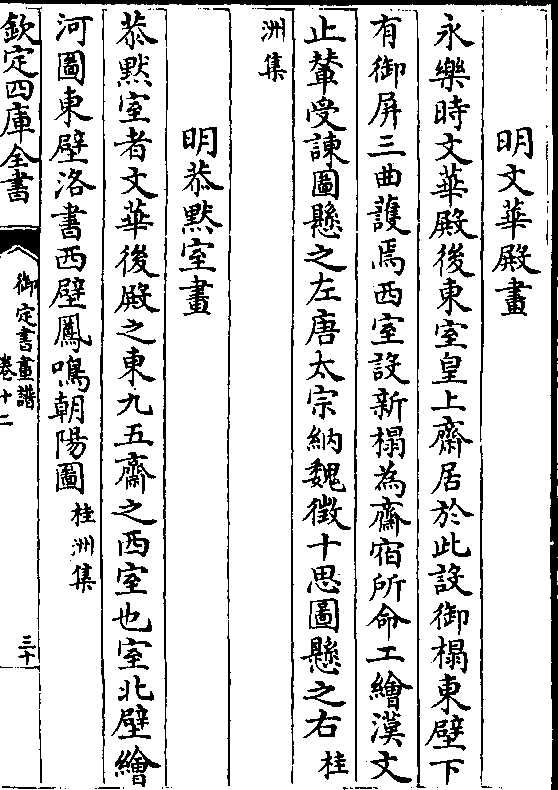 明文華殿畫
永樂時文華殿後東室皇上齋居於此設御榻東壁下
有御屏三曲護焉西室設新榻為齋宿所命工繪漢文
止輦受諫圖懸之左唐太宗納魏徵十思圖懸之右桂
洲集
明恭默室畫
恭默室者文華後殿之東九五齋之西室也室北壁繪
河圖東壁洛書西壁鳳鳴朝陽圖桂洲集
欽定四庫全書
御定書畫譜
卷十二
三十